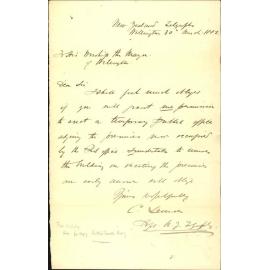 New Zealand Telegraphs
Wellington 30 March 1882
To His Worship the Mayor
of Wellington
Dear Sir
I shall feel much obliged
if you will grant me permission
to erect a temporary Public office
adjoining the premises now occupied
by the Tel office I undertake to remove
the building on vacating the premises
an early answer will oblige
Yours respectfully
C Lemon